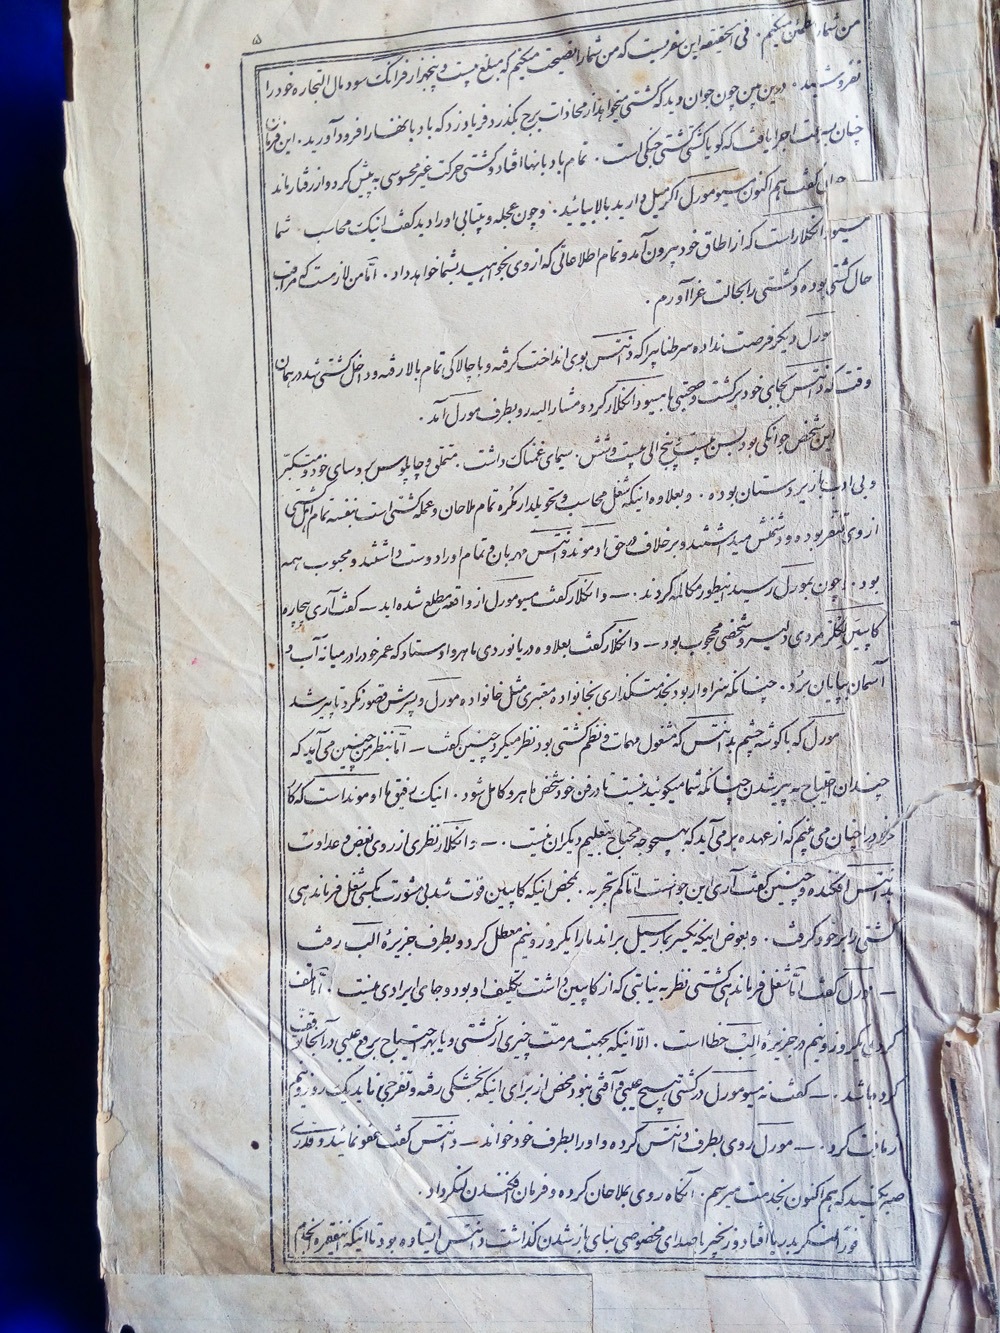 ۵
من شما را مطمئن میکنم . فی الحقیقه این سفریست که من شما را نصیحت میکنم که مبلغ بیست و پنجهزار فرانک سود مال التجاره خود را
نفروشید . در این بین چون جوان دید که کشتی میخواهد از محاذات برج بگذرد فریاد زد که بادبانها را فرود آورید . این فرمان
چنان بسرعت اجرا یافت که گویا کشتی کشتی جنگی است . تمام بادبانها افتاد و کشتی حرکت غیر محسوسی به پیش کرد و از رفتار ماند
جوان گفت هم اکنون مسیو مورل اگر میل دارید بالا بیائید . و چون عجله و بیتابی او را دید گفت اینک محاسب شما
مسیو دانگلار است که از اطاق خود بیرون آمد و تمام اطلاعاتی که از وی بخواهید بشما خواهد داد . اما من لازمست که مراقب
حال کشتی بوده و کشتی را بحالت عزا آورم .
مورل دیگر فرصت نداده سر طنابیرا که دانتس بوی انداخت گرفته و با چالاکی تمام بالا رفته و داخل کشتی شد در همان
وقت که دانتس بجای خود برگشت و صحبتی با مسیو دانگلار کرد و مشارالیه رو بطرف مورل آمد .
این شخص جوانکی بود بسن بیست پنج الی بیست و شش . سیمای غمناک داشت . متملق و چاپلوس بروسای خود و متکبر
و بی ادب با زیر دستان بود . و بعلاوه اینکه شغل محاسب و تحویلدار مکروه تمام ملاحان و عمله کشتی است بنفسه تمام اهل کشتی
از وی متنفر بوده و دشمنش میداشتند و بر خلاف در حق ادموند دانتس مهربان و تمام او را دوست داشتند و محبوب همه
بود . و چون بمورل رسید اینطور مکالمه کردند :— دانگلار گفت مسیو مورل از واقعه مطلع شده اید — گفت آری بیچاره
کاپیتن لکلر مردی دلیر و شخصی محجوب بود — دانگلار گفت بعلاوه در یانوردی ماهر و اوستاد که عمر خود را در میانه آب و
آسمان بپایان برد . چنانکه سزاوار بود بخدمتگذاری بخانواده معتبری مثل خانواده مورل و پسرش قصور نکرد تا پیر شد
مورل که با گوشه چشم بدانتس که مشغول مهمات و نظم کشتی بود نظر میکرد چنین گفت — اما بنظر من چنین می آید که
چندان احتیاج به پیر شدن چنانکه شما میگوئید نیست تا در فن خود شخص ماهر و کامل شود . اینک رفیق ما ادموند است که کار
خود را چنان می بینم که از عهده بر می آید که بهیچوجه محتاج بتعلیم دیگران نیست . — دانگلار نظری از روی بغض و عداوت
بدانتس افکنده و چنین گفت آری این جوانست اما کم تجربه . بمحض اینکه کاپیتن فوت شد بی مشورت بکسی شغل فرماندهی
کشتی را بر خود گرفت . و بعوض اینکه یکسر بمارسیل براند ما را یکروز و نیم معطل کرد و بطرف جزیره الب رفت
— مورل گفت اما شغل فرماندهی کشتی نظر به نیابتی که از کاپیتن داشت تکلیف او بود و جای ایرادی نیست . اما تلف
کردن یکروز و نیم در جزیره الب خطا است . الا اینکه بجهت مرمت چیزی از کشتی و یا بهر احتیاج برفع عیبی در آنجا توقف
کرده باشد . — گفت نه مسیو مورل در کشتی هیچ عیبی و آفتی نبود محض از برای اینکه بخشکی رفته و تفرجی نماید یک روز و نیم
زمانت کرد . — مورل روی بطرف دانتس کرده و او را بطرف خود خواند — دانتس گفت عفو نمائید و قدری
صبر بکنید که هم اکنون بخدمت میرسم . آنگاه روی بملاحان کرده و فرمان افکندن لنگر داد .
فورا لنگر بدریا افتاد و زنجیر با صدای مخصوصی بنای باز شدن گذاشت دانتس ایستاده بود تا اینکه اینفقره انجام